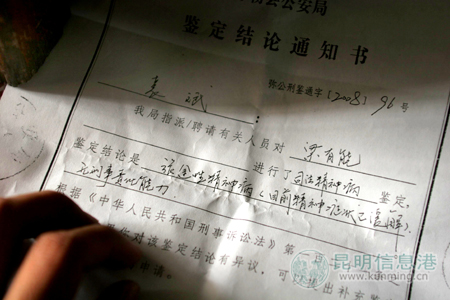 县公安局
鉴定结论通知书
公刑鉴通字〔2008〕96号
斌
我局指派/聘请有关人员对 有能
进行了 司法精神病 鉴定,
鉴定结论是 精神病(目前精神症状已缓解).
无刑事责任能力
根据《中华人民共和国刑事诉讼法》第
你对该鉴定结论有异议,可以 出补充
申请。
昆明信息港
www.kunming.cn